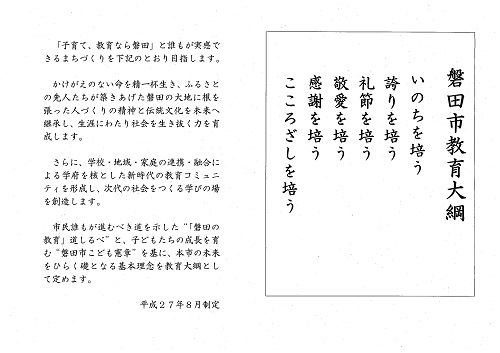 「子育て、教育なら磐田」と誰もが実感で
きるまちづくりを下記のとおり目指します。
かけがえのない命を精一杯生き、ふるさと
の先人たちが築きあげた磐田の大地に根を
張った人づくりの精神と伝統文化を未来へ
継承し、生涯にわたり社会を生き抜く力を育
成します。
さらに、学校・地域・家庭の連携・融合に
よる学府を核とした新時代の教育コミュニ
ティを形成し、次代の社会をつくる学びの場
を創造します。
市民誰もが進むべき道を示した“「磐田の
教育」道しるべ”と、子どもたちの成長を育
む“磐田市こども憲章”を基に、本市の未来
をひらく礎となる基本理念を教育大綱とし
て定めます。
平成27年8月制定
磐田市教育大綱
いのちを培う
誇りを培う
礼節を培う
敬愛を培う
感謝を培う
こころざしを培う